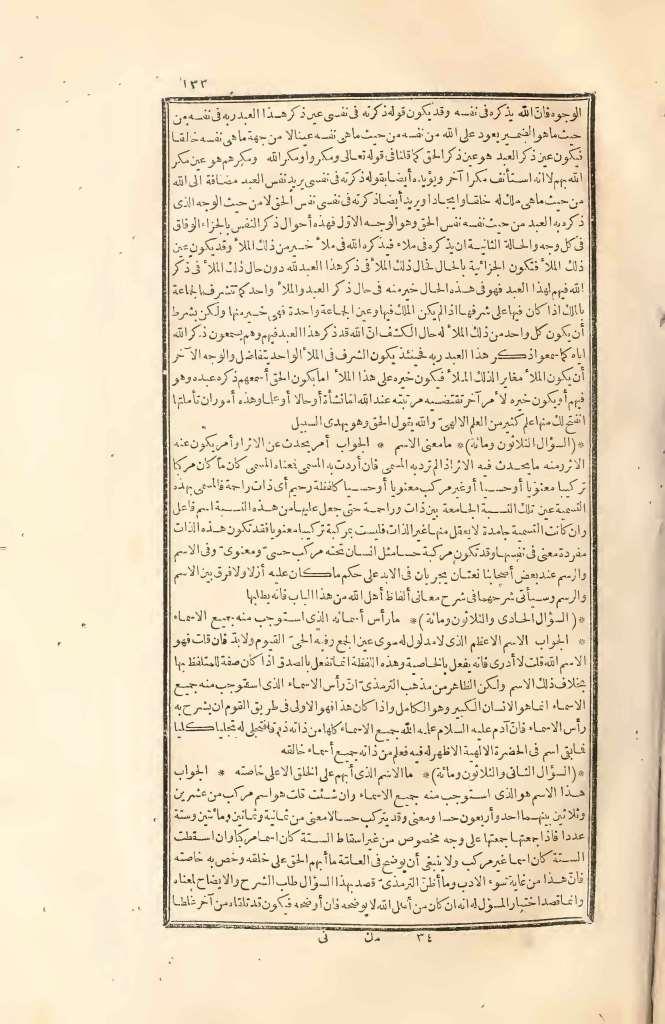 ١٣٣
الوجوه فان الله يذكره فى نفسه وقد يكون قوله ذكرته فى نفسى عين ذكر هذا العبد ربه فى نفسه من
حيث ما هو الضمير يعود على الله من نفسه من حيث ما هى نفسه عينا لا من جهة ما هى نفسه خلقا
فيكون عين ذكر العبد هو عين ذكر الحق كما قلنا فى قوله تعالى ومكروا ومكر الله ومكرهم هو عين مكر
الله بهم لا انه استأنف مكرا آخر ويؤيده أيضا بقوله ذكرته فى نفسى يريد نفس العبد مضافة الى الله
من حيث ما هى ملك له خلقا وايجادا ويريد أيضا ذكرته فى نفسى نفس الحق لا من حيث الوجه الذى
ذكره به العبد من حيث نفسه نفس الحق وهو الوجه الاول فهذه أحوال ذكر النفس بالجزاء الوفاق
فى كل وجه والحالة الثانية ان يذكره فى ملاء فيذكره الله فى ملأ خير من ذلك الملأ وقد يكون عين
ذلك الملأ فتكون الجزائية بالحال فحال ذلك الملأ فى ذكر هذا العبد لله دون حال ذلك الملأ فى ذكر
الله فيهم لهذا العبد فهو فى هذه الحال خير منه فى حال ذكر العبد والملأ واحد كما تتشرف الجماعة
بالملك اذا كان فيها على شرفها اذا لم يكن الملك فيها وعين الجماعة واحدة فهى خير منها ولكن بشرط
أن يكون كل واحد من ذلك الملأ له حال الكشف انّ الله قد ذكر هذا العبد فيهم وهم يسمعون ذكر الله
اياه كما سمعوا ذكر هذا العبد ربه فحينئذ يكون الشرف فى الملأ الواحد يتفاضل والوجه الآخر
أن يكون الملأ مغايرا لذلك الملأ فيكون خيره على هذا الملأ اما بكون الحق أسمعهم ذكره عبده وهو
فيهم أو يكون خيره لامر آخر تقتضيه مرتبته عند الله اما نشأة أو حالا أو علما وهذه أمور ان تأملتها
انفتح لك منها علم كثير من العلم الالهىّ والله يقول الحق وهو يهدى السبيل
* (السؤال الثلاثون ومائة) * ما معنى الاسم * الجواب أمر يحدث عن الاثر أو أمر يكون عنه
الاثر ومنه ما يحدث فيه الاثر اذا لم ترد به المسمى فان أردت به المسمى فمعناه المسمى كان ما كان مركبا
تركيبا معنويا أو حسيا أو غير مركب معنويا أو حسيا كلفظة رحيم أى ذات راحمة فالمسمى بهذه
التسمية عين تلك النسبة الجامعة بين ذات وراحمة حتى جعل عليها من هذه النسبة اسم فاعل
وان كانت التسمية جامدة لا يعقل منها غير الذات فليست بمركبة تركيبا معنويا فقد تكون هذه الذات
مفردة معنى فى نفسها وقد تكون مركبة حسا مثل انسان تحته مركب حسىّ ومعنوىّ وفى الاسم
والرسم عند بعض أصحابنا نعتان يجريان فى الابد على حكم ما كان عليه أزلا ولا فرق بين الاسم
والرسم وسيأتى شرحهما فى شرح معانى ألفاظ أهل الله من هذا الباب فانه يطالبها
* (السؤال الحادى والثلاثون ومائة) * ما رأس أسمائه الذى استوجب منه جميع الاسماء
* الجواب الاسم الاعظم الذى لا مدلول له سوى عين الجمع وفيه الحىّ القيوم ولا بدّ فان قلت فهو
الاسم الله قلت لا أدرى فانه يفعل بالخاصية وهذه اللفظة انما تفعل بالصدق اذا كان صفة للمتلفظ بها
بخلاف ذلك الاسم ولكن الظاهر من مذهب الترمذىّ انّ رأس الاسماء الذى استوجب منه جميع
الاسماء انما هو الانسان الكبير وهو الكامل واذا كان هذا فهو الاولى فى طريق القوم ان يشرح به
رأس الاسماء فانّ آدم عليه السلام علمه الله جميع الاسماء كلها من ذاته ذوقا فتجلى له تجليا كليا
فما بقى اسم فى الحضرة الالهية الا ظهر له فيه فعلم من ذاته جميع أسماء خالقه
* (السؤال الثانى والثلاثون ومائة) * ما الاسم الذى أبهم على الخلق الا على خاصته * الجواب
هذا الاسم هو الذى استوجب منه جميع الاسماء وان شئت قلت هو اسم مركب من عشرين
وثلاثين بينهما احد وأربعون حسا ومعنى وقد يتركب حسا لا معنى من ثمانية وثمانين ومائتين وستة
عددا فاذا جمعتها جمعتها على وجه مخصوص من غير اسقاط الستة كان اسما مركبا وان اسقطت
الستة كان اسما غير مركب ولا ينبغى أن يوضح فى العامّة ما أبهم الحق على خلقه وخص به خاصته
فانّ هذا من غاية سوء الادب وما أظنّ الترمذىّ قصد بهذا السؤال طلب الشرح والايضاح لمعناه
وانما قصد اختبار المسؤل له انه ان كان من أهل الله لا يوضحه فان أوضحه فيكون قد تلقاه من آخر غلطا
٣٤ مك نى